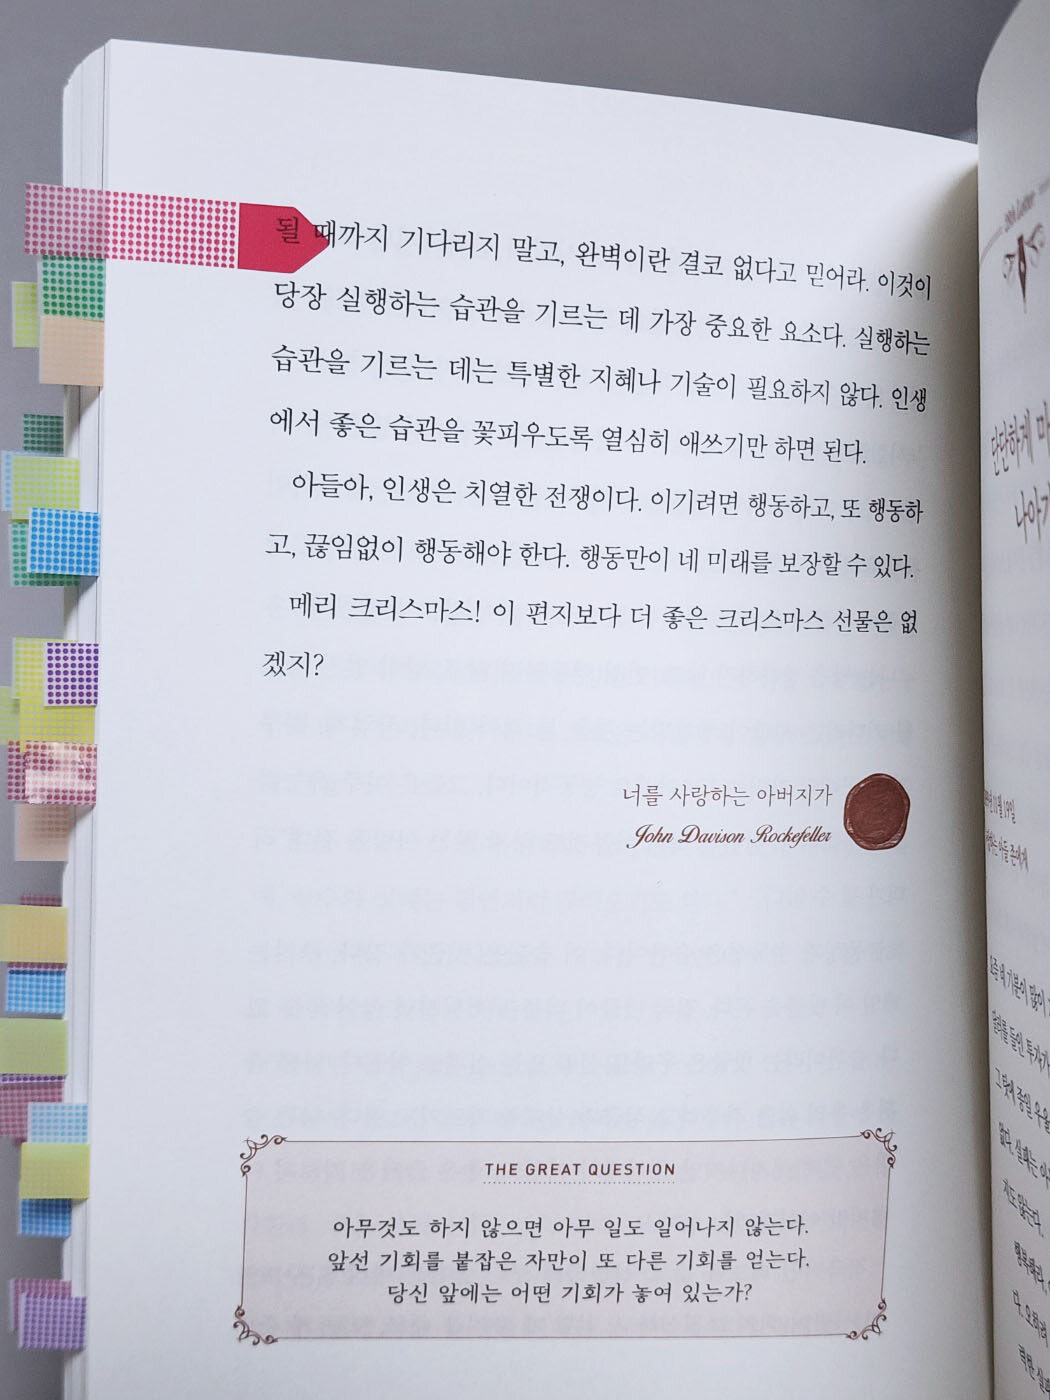 될 때까지 기다리지 말고, 완벽이란 결코 없다고 믿어라. 이것이
당장 실행하는 습관을 기르는 데 가장 중요한 요소다. 실행하는
습관을 기르는 데는 특별한 지혜나 기술이 필요하지 않다. 인생
에서 좋은 습관을 꽃피우도록 열심히 애쓰기만 하면 된다.
아들아, 인생은 치열한 전쟁이다. 이기려면 행동하고, 또 행동하
고, 끊임없이 행동해야 한다. 행동만이 네 미래를 보장할 수 있다.
메리 크리스마스! 이 편지보다 더 좋은 크리스마스 선물은 없
겠지?
너를 사랑하는 아버지가
John Davison Rockefeller
THE GREAT QUESTION
아무것도 하지 않으면 아무 일도 일어나지 않는다.
앞선 기회를 붙잡은 자만이 또 다른 기회를 얻는다.
당신 앞에는 어떤 기회가 놓여 있는가?
단단하게
나아
11월 19일
아들 존에게
요즘 네 기분이 많이
달러를 들인 투자가
그 탓에 종일 우울
없다. 실패는
지도 않는다.
행복해라,
다. 오히려